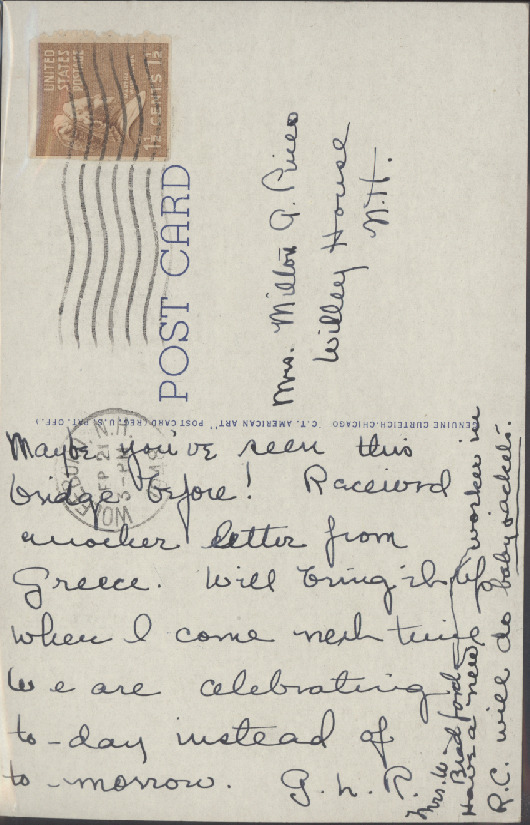 UNITED
STATES
POSTAGE
1½ CENTS 1½
POST CARD
Mrs. Milton A.
Willey House
N.H.
GENUINE CURTEICH-CHICAGO "C.T. AMERICAN ART" POST CARD (REG. U.S. PAT. OFF.)
SEP 21
3-PM
Maybe you've seen this
bridge before! Received
another letter from
Greece. Will bring it up
when I come next time
We are celebrating
to-day instead of
to-morrow. A.
Mrs. W. Bradford
Have a new worker in
R.C. will do baby jackets.